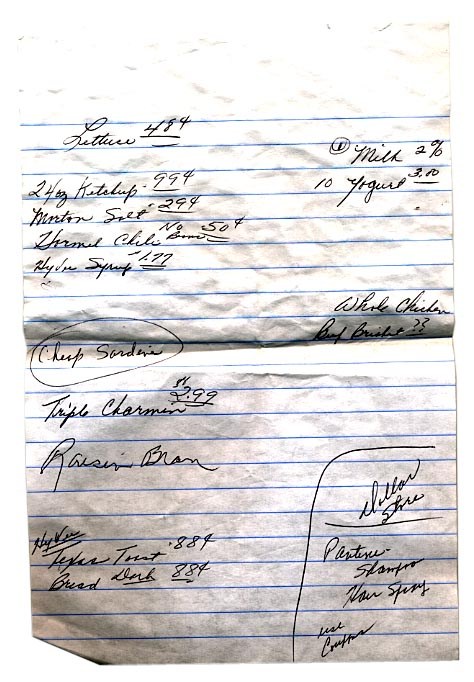 Lettuce 48¢
① Milk 2%
24oz Ketchup - 99¢
10 Yogurt 3.00
Morton Salt 29¢
Hormel Chili No Beans 50¢
HyVee Syrup $1.77
Whole Chicken
Beef Brisket ??
Cheap Sardine
Triple Charmin $2.99
Raisin Bran
Dollar
Store
HyVee
Texas Toast .88¢
Bread Dark 88¢
Pantene -
Shampoo
Hair Spray
use
Coupons